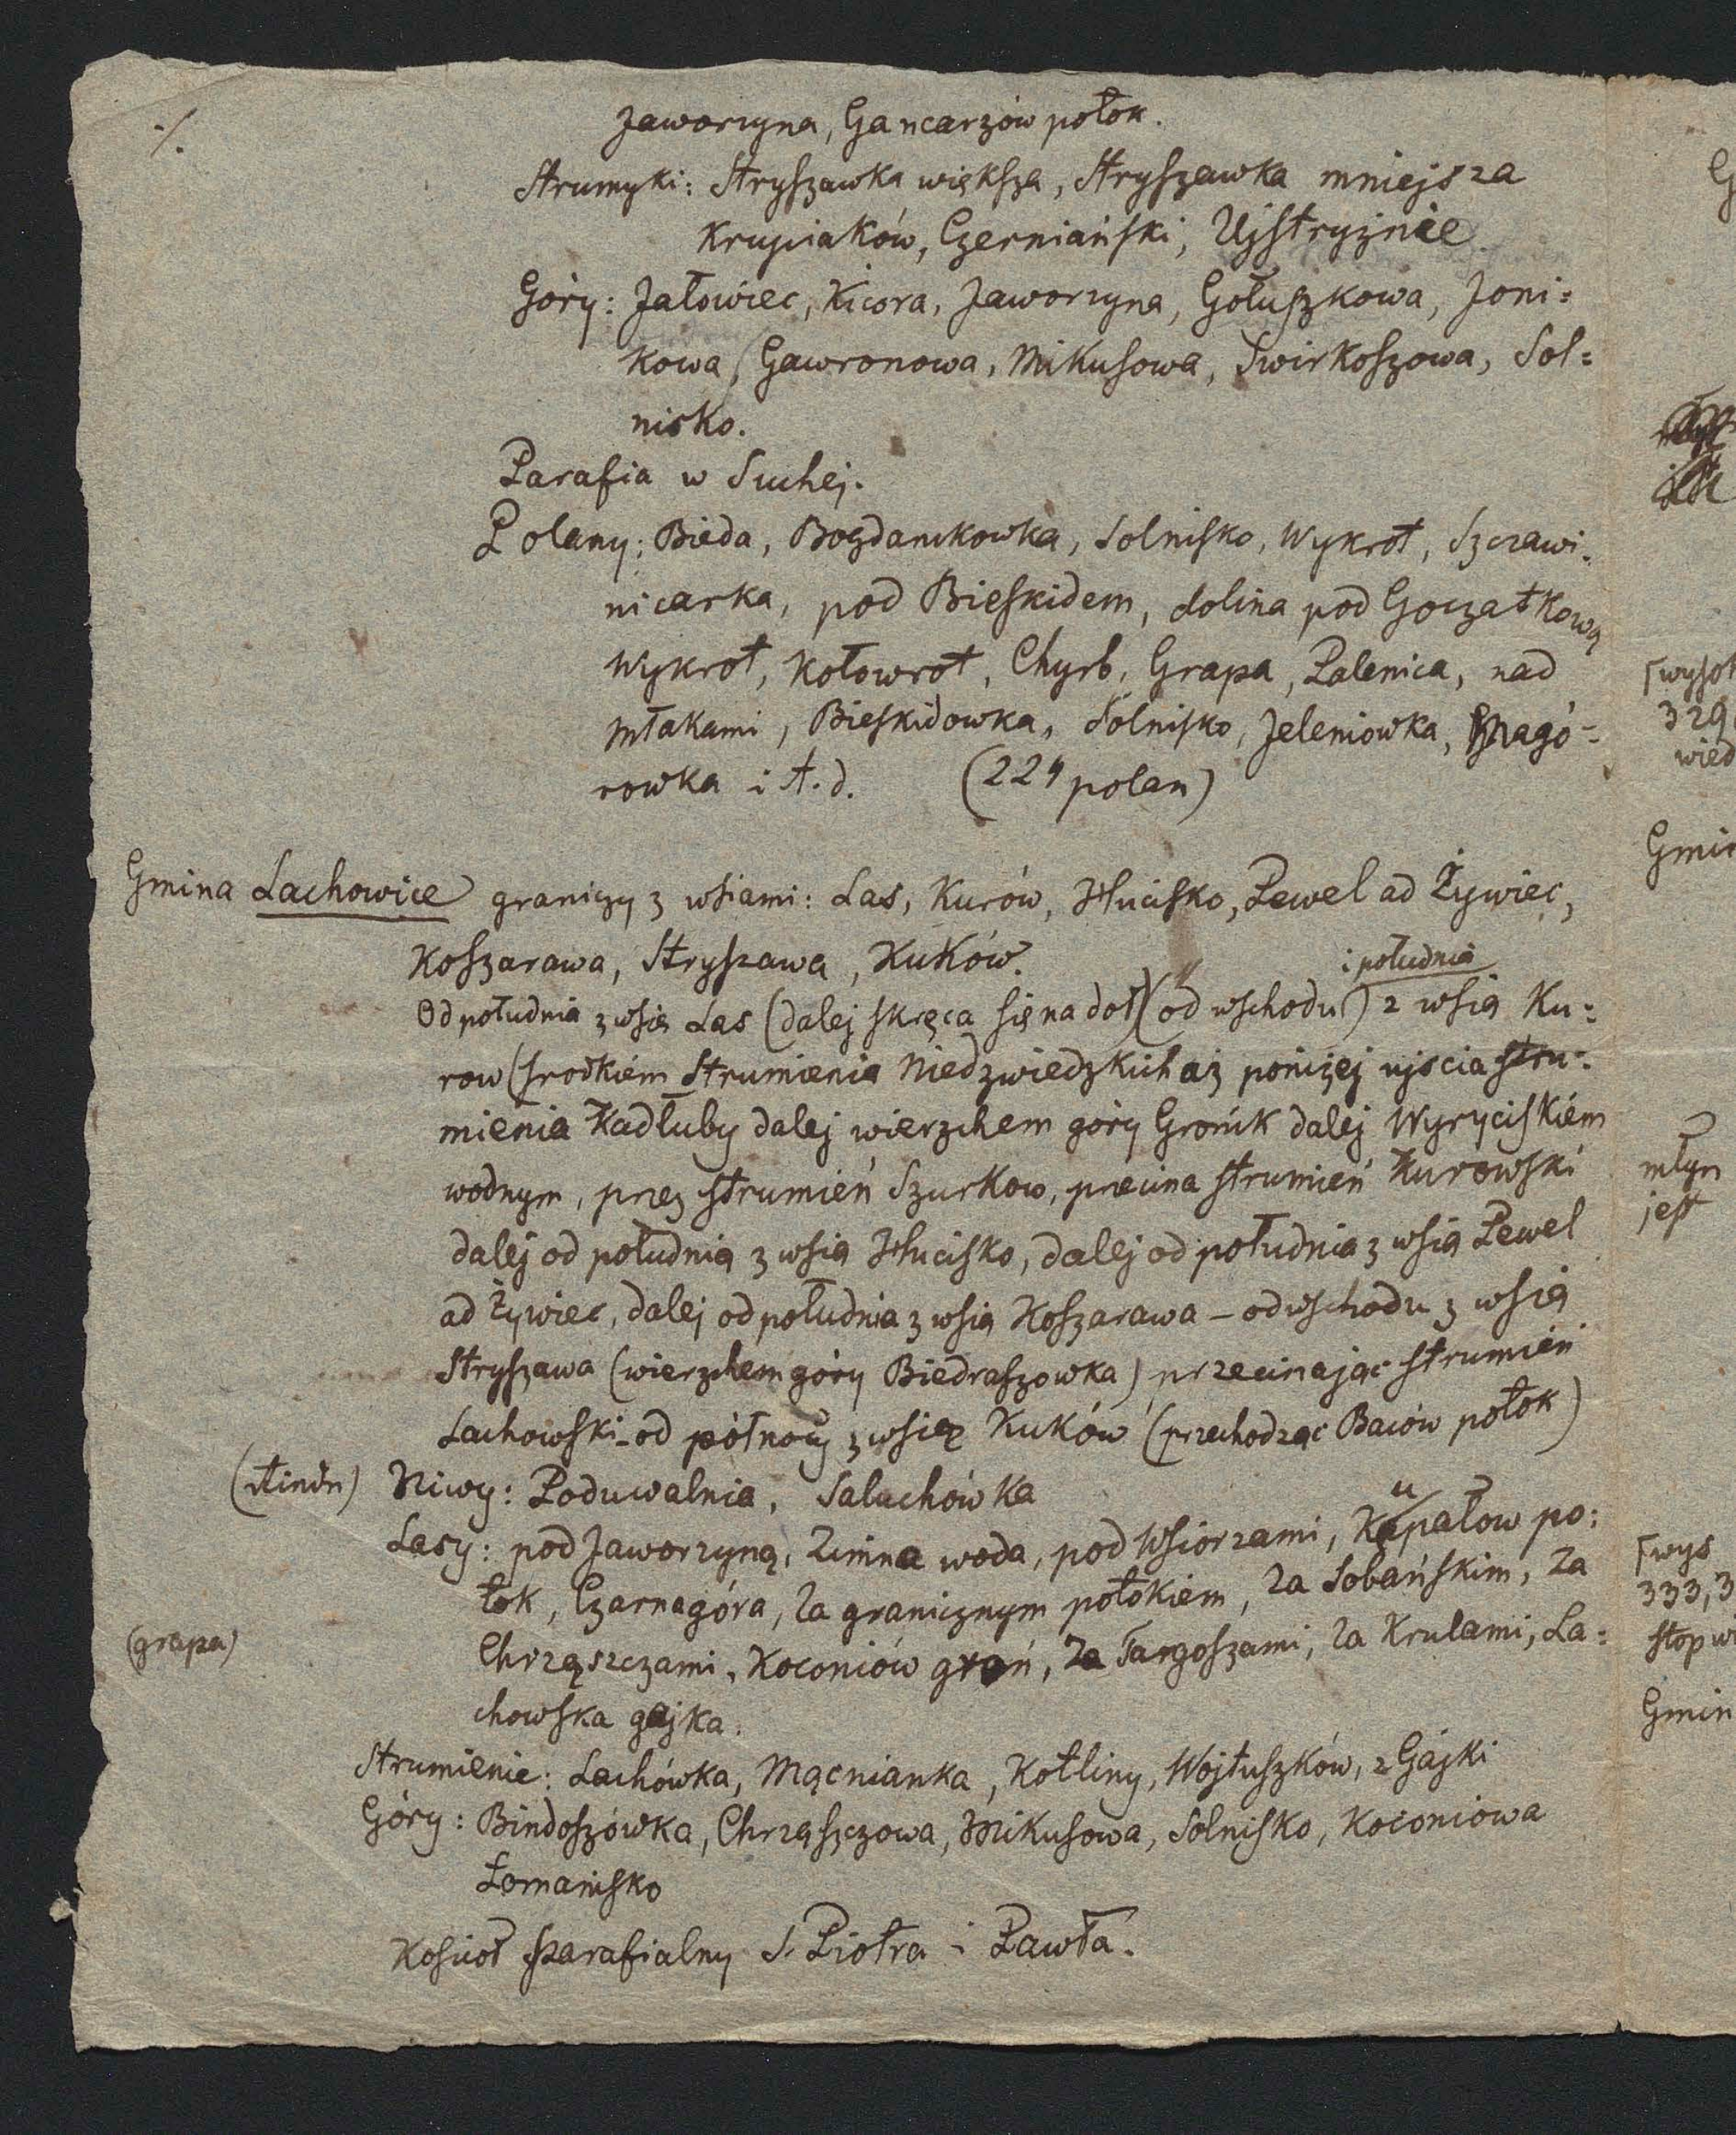 ./.
Jaworzyna, Gancarzów potok.
Strumyki: Stryszawka większa, Stryszawka mniejsza
Krupiaków, Czerniański, Ujstryżnie
Góry: Jałowiec, Kicora, Jaworzyna, Gołuszkowa, Joni=
kowa, Gawronowa, Mikusowa, Swirkoszowa, Sol=
nisko.
Parafia w Suchej.
Polany: Bieda, Bogdanikowka, Solnisko, Wykrot, Szczawi-
nicarka, pod Bieskidem, dolina pod Goczałkową
Wykrot, Kołowrot, Chyrb, Grapa, Palenica, nad
młakami, Bieskidowka, Solnisko, Jeleniowka, Magó-
rowka i t.d. (224 polan)
Gmina Lachowice graniczy z wsiami: Las, Kurów, Hucisko, Pewel ad Żywiec,
Koszarawa, Stryszawa, Kuków.
i południa
Od południa z wsią Las (dalej skręca się na doł) (od wschodu) z wsią Ku=
row (srodkiem Strumienia Niedzwiedzkich aż poniżej ujscia stru-
mienia Kadłuby dalej wierzchem góry Grońik dalej Wyryciskiém
wodnym, przez strumień Szurkow, przecina strumień Kurowski
dalej od południa z wsią Hucisko, dalej od południa z wsią Pewel
ad Żywiec, dalej od południa z wsią Koszarawa – od wschodu z wsią
Stryszawa (wierzchem góry Biedraszowka) przecinając strumień
Lachowski – od północy z wsią Kuków (przechodząc Baców potok)
Niwy: Poduwalnia, Saluchówka
Lasy: pod Jaworzyną, Zimna woda, pod Wsiorzami, Kupałow po=
tok, Czarnagóra, Za granicznym potokiem, Za Sobańskim, Za
(grapa) Chrząszczami, Koconiów groń, Za Targoszami, Za Krulami, La=
chowska gajka.
Strumienie: Lachówka, Mącnianka, Kotliny, Wojtuszków, z Gajki
Góry: Bindoszówka, Chrząszczowa, Mikusowa, Solnisko, Koconiowa
Łomanisko
Koscioł parafialny S. Piotra i Pawła.
329
wied
Gmin
młyn
jest
wys
333,3
stop w
Gmin